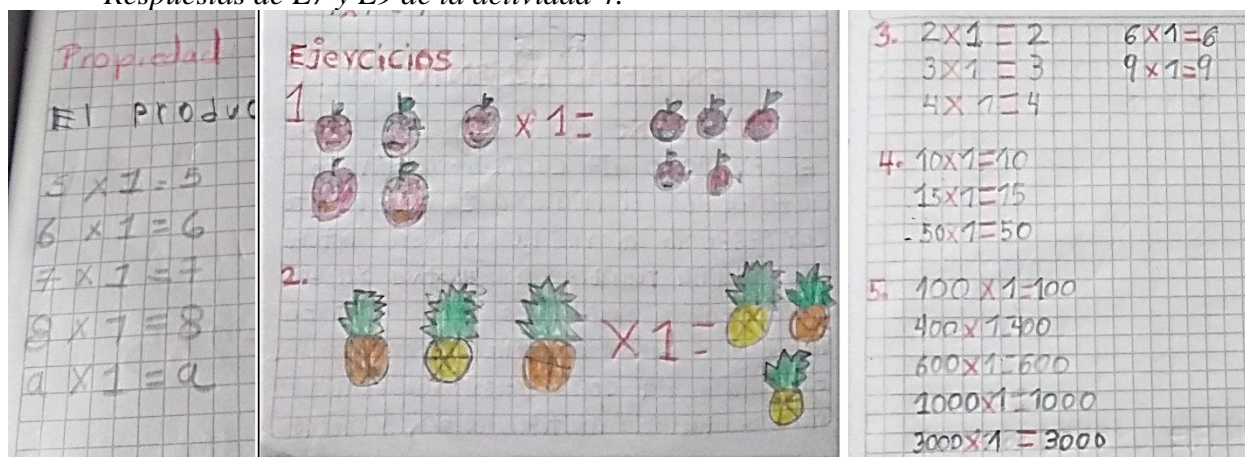 Respuestas de E7 y E9 de la actividad 4.
Propiedad
El produc
5 x 1 = 5
6 x 1 = 6
7 x 1 = 7
8 x 1 = 8
a x 1 = a
Ejercicios
1
x 1 =
2.
x 1 =
3. 2x1 = 2 6x1=6
3x1 = 3 9x1=9
4x1=4
4. 10x1=10
15x1=15
50x1=50
5. 100x1=100
400x1=400
600x1=600
1000x1=1000
3000x1=3000